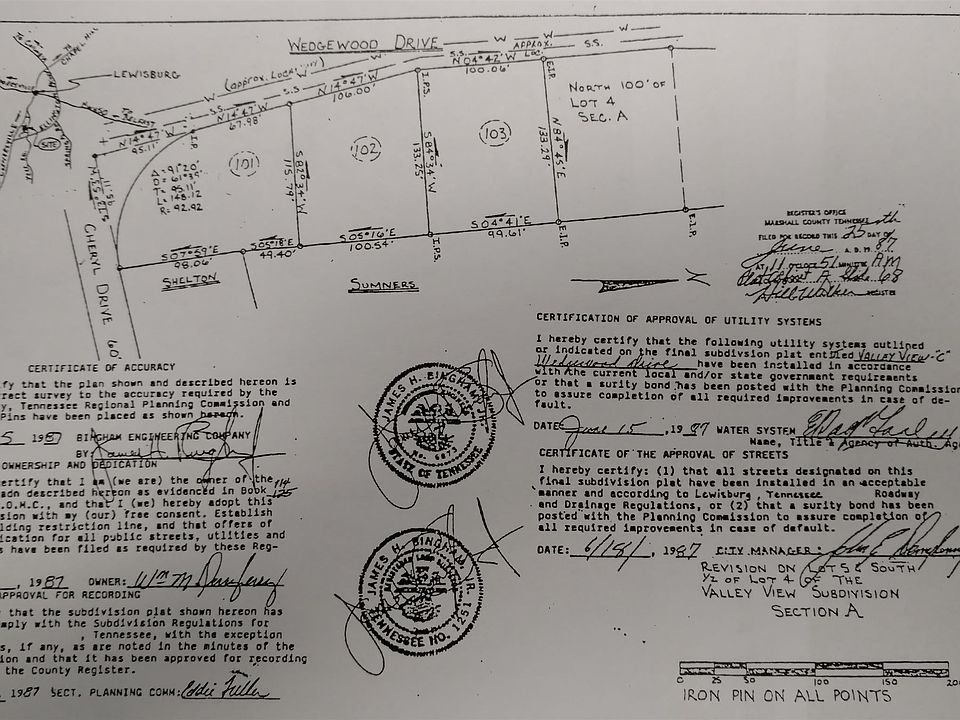 WEDGEWOOD DRIVE
LEWISBURG
(approx. Location)
W
S.S.
W
APPROX. LOC.
S.S.
N14°47'W
95.11'
N14°47'W
67.98'
N14°47'W
106.00'
N04°42'W
100.06'
I.P.S.
E.I.P.
NORTH 100' OF
LOT 4
SEC. A
101
102
103
Δ = 91°20'
D = 61°39'
T = 95.11'
L = 148.12
R = 92.92
S82°34'W
115.79'
S84°34'W
133.25'
N84°45'E
133.29'
SITE
S07°59'E
98.06'
S05°18'E
49.40'
S05°16'E
100.54'
S04°41'E
99.61'
I.P.S.
E.I.P.
E.I.P.
SHELTON
SUMNERS
CHERYL DRIVE 60'
REGISTER'S OFFICE
MARSHALL COUNTY TENNESSEE
FILED FOR RECORD THIS 25th DAY OF
June A.D. 19 87
AT 11 O'CLOCK 51 MINUTES AM
Plat Cabinet A Slide 68
REGISTER
CERTIFICATION OF APPROVAL OF UTILITY SYSTEMS
I hereby certify that the following utility systems outlined
or indicated on the final subdivision plat entitled VALLEY VIEW-"C"
Wedgewood Drive have been installed in accordance
with the current local and/or state government requirements
or that a surety bond has been posted with the Planning Commission
to assure completion of all required improvements in case of de-
fault.
DATE: June 15, 1987 WATER SYSTEM
Name, Title & Agency of Auth. Age
CERTIFICATE OF THE APPROVAL OF STREETS
I hereby certify: (1) that all streets designated on this
final subdivision plat have been installed in an acceptable
manner and according to Lewisburg, Tennessee Roadway
and Drainage Regulations, or (2) that a surety bond has been
posted with the Planning Commission to assure completion of
all required improvements in case of default.
DATE: 6/18/, 1987 CITY MANAGER:
REVISION ON LOT 5 & SOUTH
1/2 OF LOT 4 OF THE
VALLEY VIEW SUBDIVISION
SECTION A
0 25 50 100 150 200
IRON PIN ON ALL POINTS
CERTIFICATE OF ACCURACY
fy that the plan shown and described hereon is
rect survey to the accuracy required by the
y, Tennessee Regional Planning Commission and
Pins have been placed as shown hereon.
1987 BINGHAM ENGINEERING COMPANY
BY: James H. Bingham
OWNERSHIP AND DEDICATION
ertify that I am (we are) the owner of the
adn described hereon as evidenced in Book 114
.O.M.C., and that I (we) hereby adopt this 125
sion with my (our) free consent. Establish
lding restriction line, and that offers of
ication for all public streets, utilities and
s have been filed as required by these Reg-
, 1987 OWNER: Wm M
APPROVAL FOR RECORDING
that the subdivision plat shown hereon has
mply with the Subdivision Regulations for
, Tennessee, with the exception
s, if any, as are noted in the minutes of the
ion and that it has been approved for recording
the County Register.
, 1987 SECT. PLANNING COMM: Eddie Fuller
JAMES H. BINGHAM JR.
STATE OF TENNESSEE
JAMES H. BINGHAM, JR.
TENNESSEE NO. 1251